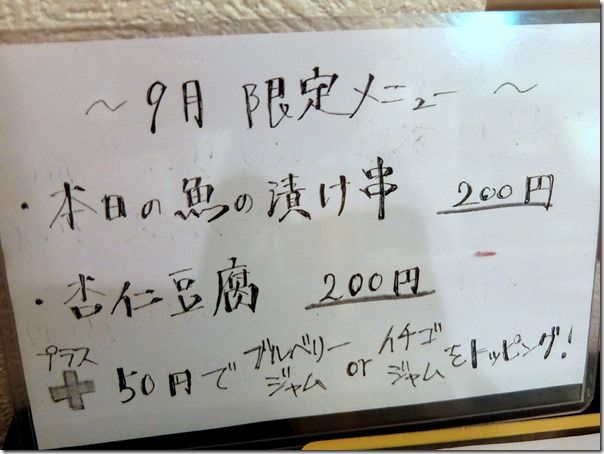 ～ 9月 限定メニュー ～
・本日の魚の漬け串 200円
・杏仁豆腐 200円
プラス
+ 50円で ブルベリージャム or イチゴジャム をトッピング!